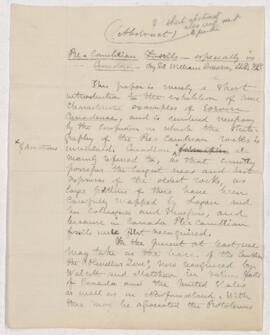 A short abstract
also sent out
(Abstract)
Pre-Cambrian Fossils — especially in
Canada. — By Sir William Dawson,
This paper is merely a short
introduction to the exhibition of some
characteristic examples of Eozoon
Canadense, and is rendered necessary
by the confusion in which the strati-
graphy of the Pre-Cambrian rocks is
involved. Canadian
mainly referred to, as that country
possesses the largest area and best
exposures of the oldest rocks, as
large portions of these have been
carefully mapped by Logan and
his Colleagues and successors, and
because in Canada Pre-Cambrian
fossils were first recognized.
In the present at least we
may take as the base of the Cambrian
the "Olenellus Zone", now recognized by
Walcott and Matthew in many parts
of Canada and the United States
as well as in Newfoundland. With
this may be associated the Protolenus